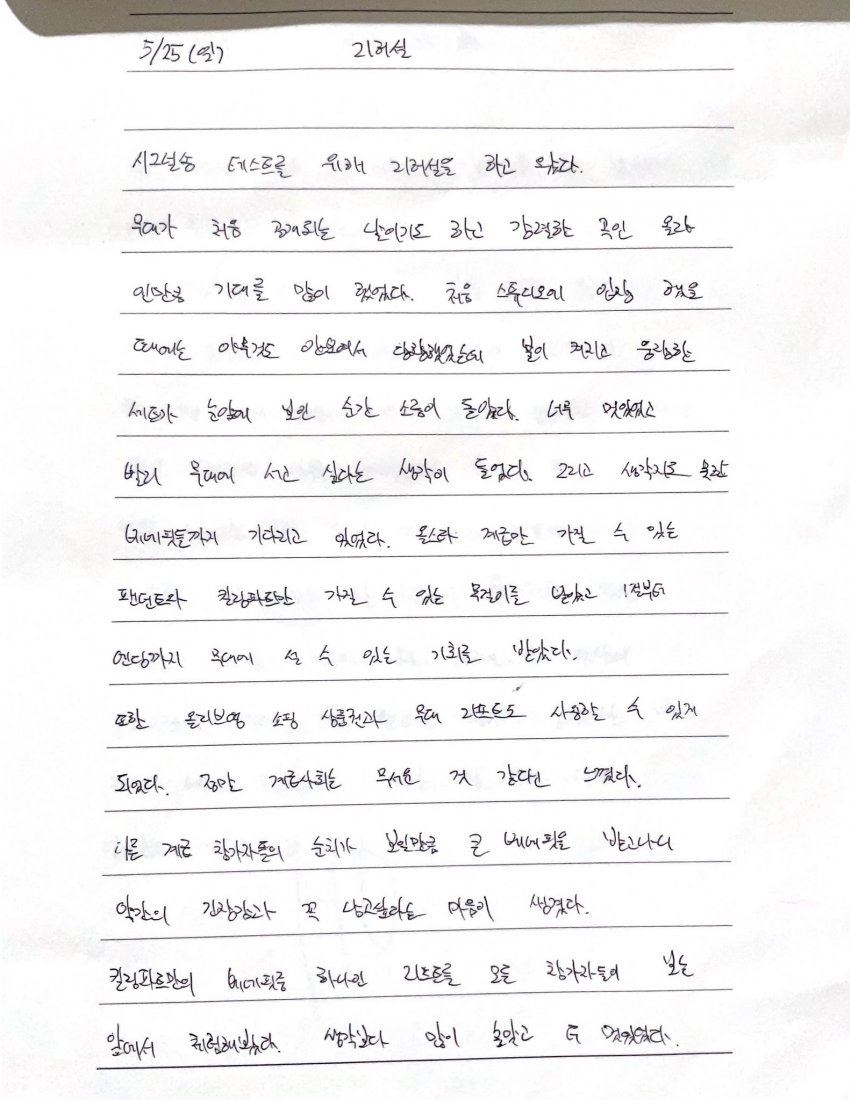 5/25 (일) 리허설
시그널송 테스트를 위해 리허설을 하고 왔다.
무대가 처음 공개되는 날이기도 하고 강렬한 곡인 올라
인만큼 기대를 많이 했었다. 처음 스튜디오에 입장 했을
때에는 아무것도 안보여서 당황했었는데 불이 켜지고 웅장한
세트가 눈앞에 보인 순간 소름이 돋았다. 너무 멋있었고
빨리 무대에 서고 싶다는 생각이 들었다. 그리고 생각지도 못한
베네핏들까지 기다리고 있었다. 올스타 계급만 가질 수 있는
팬던트와 킬링파트만 가질 수 있는 목걸이를 받았고 1절부터
엔딩까지 무대에 설 수 있는 기회를 받았다.
또한 올리브영 쇼핑 상품권과 무대 리프트도 사용할 수 있게
되었다. 정말 계급사회는 무서운 것 같다고 느꼈다.
다른 계급 참가자들의 눈치가 보일만큼 큰 베네핏을 받고나니
약간의 긴장감과 꼭 남고싶다는 마음이 생겼다.
킬링파트만의 베네핏중 하나인 리프트를 모든 참가자들이 보는
앞에서 체험해봤다. 생각보다 많이 높았고 더 멋있었다.